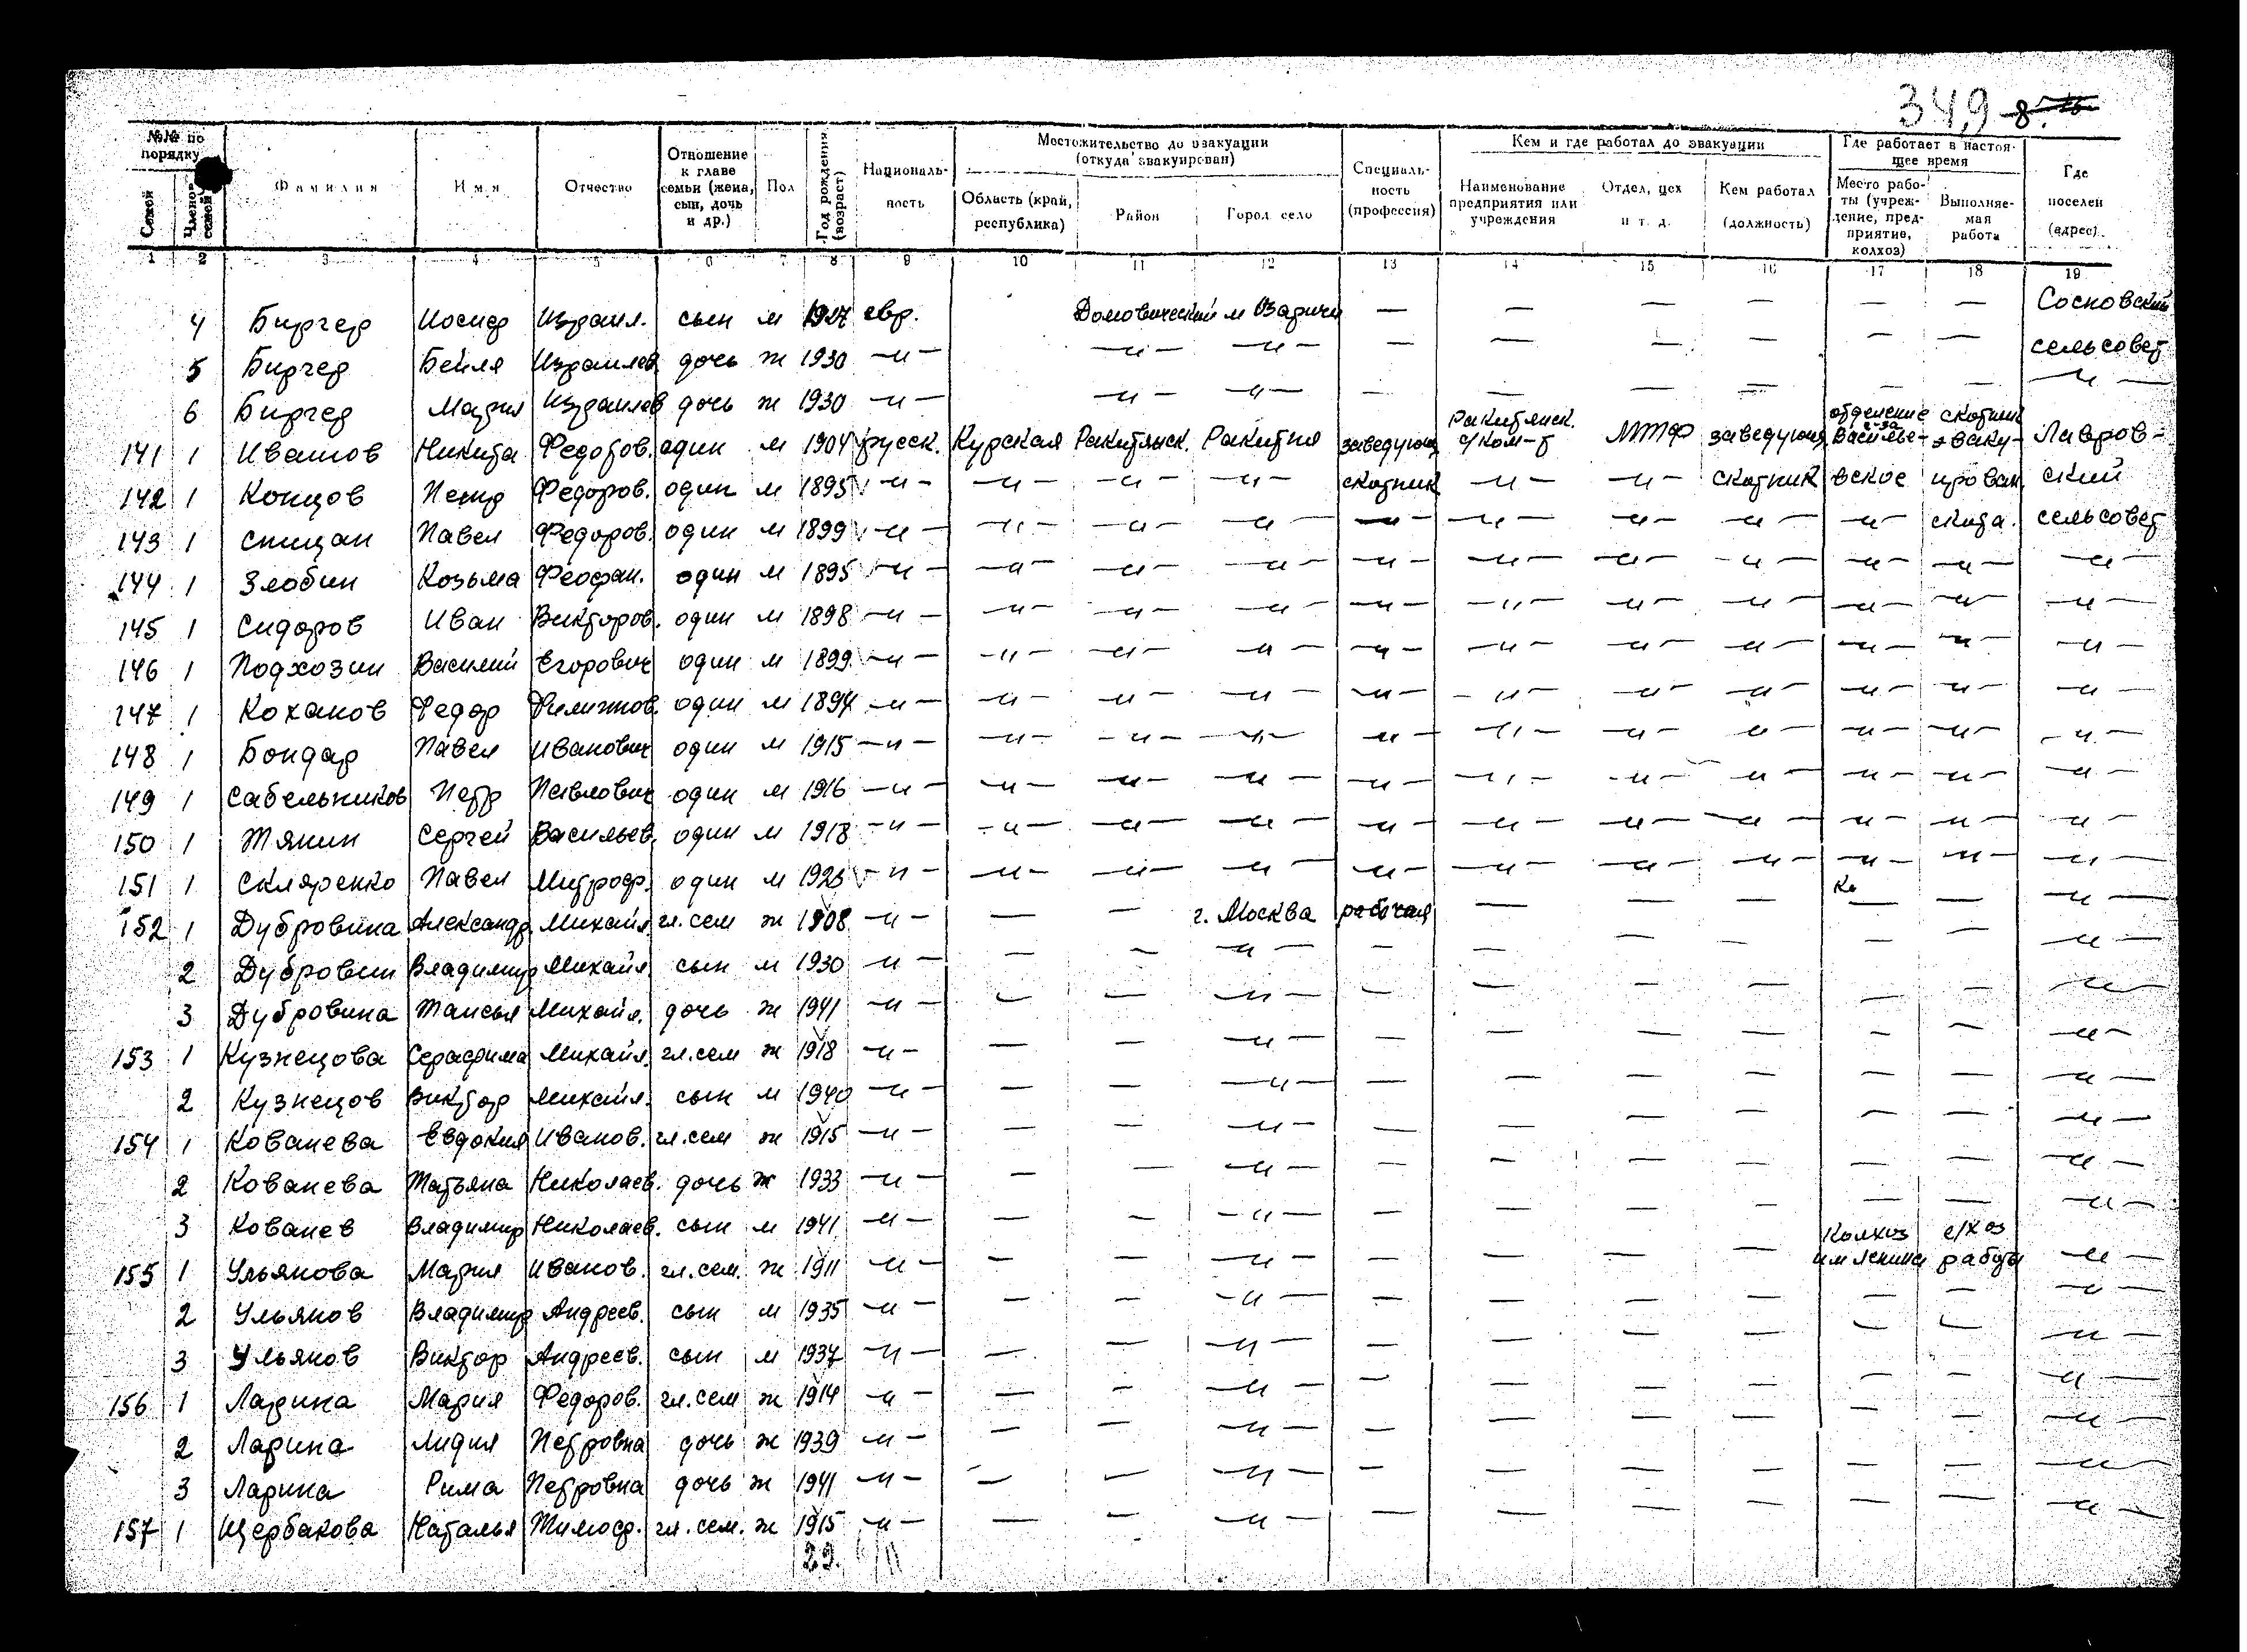 34,9
№№ по порядку
Семей
Членов семей
Фамилия
Имя
Отчество
Отношение к главе семьи (жена, сын, дочь и др.)
Пол
Год рождения (возраст)
Националь-ность
Местожительство до эвакуации (откуда эвакуирован)
Область (край, республика)
Район
Город, село
Специаль-ность (профессия)
Кем и где работал до эвакуации
Наименование предприятия или учреждения
Отдел, цех и т. д.
Кем работал (должность)
Где работает в настоя-щее время
Место рабо-ты (учреж-дение, пред-приятие, колхоз)
Выполняе-мая работа
Где поселен (адрес)
1 2 3 4 5 6 7 8 9 10 11 12 13 14 15 16 17 18 19
4 Биргер Иосиф Израил. сын м 1927 евр. Домовический м Озаричи — — — — — — Сосновский
5 Биргер Бейля Израилев дочь ж 1930 —и— —и— —и— — — — — — — сельсовет
6 Биргер Мария Израилев дочь ж 1930 —и— —и— —и— — — — — — — —и—
141 1 Ивашов Никита Федотов. один м 1904 русск. Курская Ракитянск. Ракитня заведующ. Ракитянск. с/ком-т МТФ заведующ. отделение с-за Василье- скотник эваку- Лавров-
142 1 Концов Петр Федоров. один м 1895 —и— —и— —и— —и— скотник —и— —и— скотник вское ирован. ский
143 1 Спицан Павел Федоров. один м 1899 —и— —и— —и— —и— —и— —и— —и— —и— —и— скота. сельсовет
144 1 Злобин Козьма Феофан. один м 1895 —и— —и— —и— —и— —и— —и— —и— —и— —и— —и— —и—
145 1 Сидоров Иван Викторов. один м 1898 —и— —и— —и— —и— —и— —и— —и— —и— —и— —и— —и—
146 1 Подхозин Василий Егорович один м 1899 —и— —и— —и— —и— —и— —и— —и— —и— —и— —и— —и—
147 1 Коханов Федор Филиппов. один м 1894 —и— —и— —и— —и— —и— —и— —и— —и— —и— —и— —и—
148 1 Бондар Павел Иванович один м 1915 —и— —и— —и— —и— —и— —и— —и— —и— —и— —и— —и—
149 1 Сабельников Петр Павлович один м 1916 —и— —и— —и— —и— —и— —и— —и— —и— —и— —и— —и—
150 1 Тянин Сергей Васильев. один м 1918 —и— —и— —и— —и— —и— —и— —и— —и— —и— —и— —и—
151 1 Скляренко Павел Митроф. один м 1923 —и— —и— —и— —и— —и— —и— —и— —и— —и— —и— —и—
152 1 Дубровина Александр. Михайл. гл. сем ж 1908 —и— — — г. Москва рабочая — — — Ко — — —и—
2 Дубровин Владимир Михайл. сын м 1930 —и— — — —и— — — — — — — —и—
3 Дубровина Таисья Михайл. дочь ж 1941 —и— — — —и— — — — — — — —и—
153 1 Кузнецова Серафима Михайл. гл. сем ж 1918 —и— — — —и— — — — — — — —и—
2 Кузнецов Виктор Михайл. сын м 1940 —и— — — —и— — — — — — — —и—
154 1 Кованева Евдокия Иванов. гл. сем ж 1915 —и— — — —и— — — — — — — —и—
2 Кованева Татьяна Николаев. дочь ж 1933 —и— — — —и— — — — — — — —и—
3 Кованев Владимир Николаев. сын м 1941 —и— — — —и— — — — — — — —и—
155 1 Ульянова Мария Иванов. гл. сем. ж 1911 —и— — — —и— — — — — Колхоз им Ленина с/хоз работы —и—
2 Ульянов Владимир Андреев. сын м 1935 —и— — — —и— — — — — — — —и—
3 Ульянов Виктор Андреев. сын м 1937 —и— — — —и— — — — — — — —и—
156 1 Ларина Мария Федоров. гл. сем ж 1914 —и— — — —и— — — — — — — —и—
2 Ларина Лидия Петровна дочь ж 1939 —и— — — —и— — — — — — — —и—
3 Ларина Рима Петровна дочь ж 1941 —и— — — —и— — — — — — — —и—
157 1 Щербакова Наталья Тимоф. гл. сем. ж 1915 —и— — — —и— — — — — — — —и—
29.